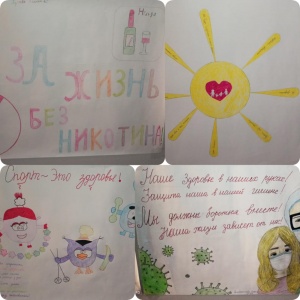 ЗА ЖИЗНЬ
БЕЗ
НИКОТИНА!
Спорт - Это здоровье!
Наше Здоровье в наших руках!
Защита наша в нашей гигиене!
Мы должны бороться вместе!
Наши жизни зависят от нас!